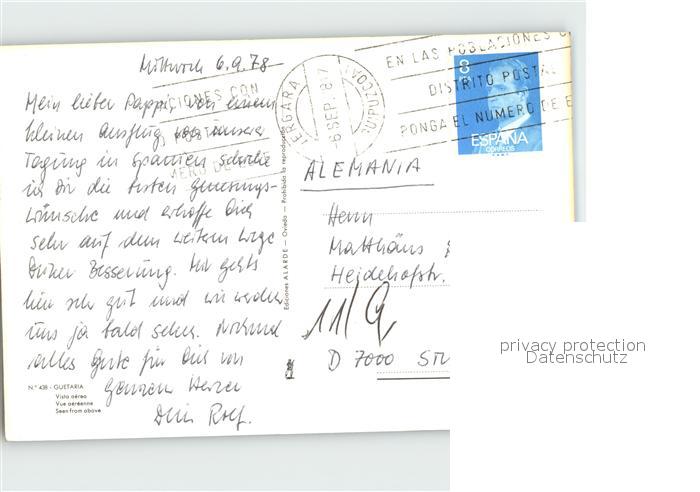 Mittwoch 6.9.78
Mein lieber Pappi, von einem
kleinen Ausflug von unserer
Tagung in Spanien schicke
ich Dir die besten Genesungs-
wünsche und erhoffe Dich
sehr auf dem weiteren Wege
Deiner Besserung. Mir gehts
hier sehr gut und wir werden
uns ja bald sehen. Nochmal
alles Gute für Dich von
Ganzem Herzen
Dein Rolf.
N.° 438 - GUETARIA
Vista aérea
Vue aérienne
Seen from above
Ediciones ALARDE - Oviedo - Prohibida la reproducción
CIONES CON
POSTAL
MERO DE
VERGARA
-6 SEP. 8-7
(GUIPUZCOA)
EN LAS POBLACIONES C
DISTRITO POSTAL
PONGA EL NUMERO DE E
8
ESPAÑA
CORREOS
ALEMANIA
Herrn
Matthäus
Heidehofstr.
11/9
D 7000 STU
privacy protection
Datenschutz